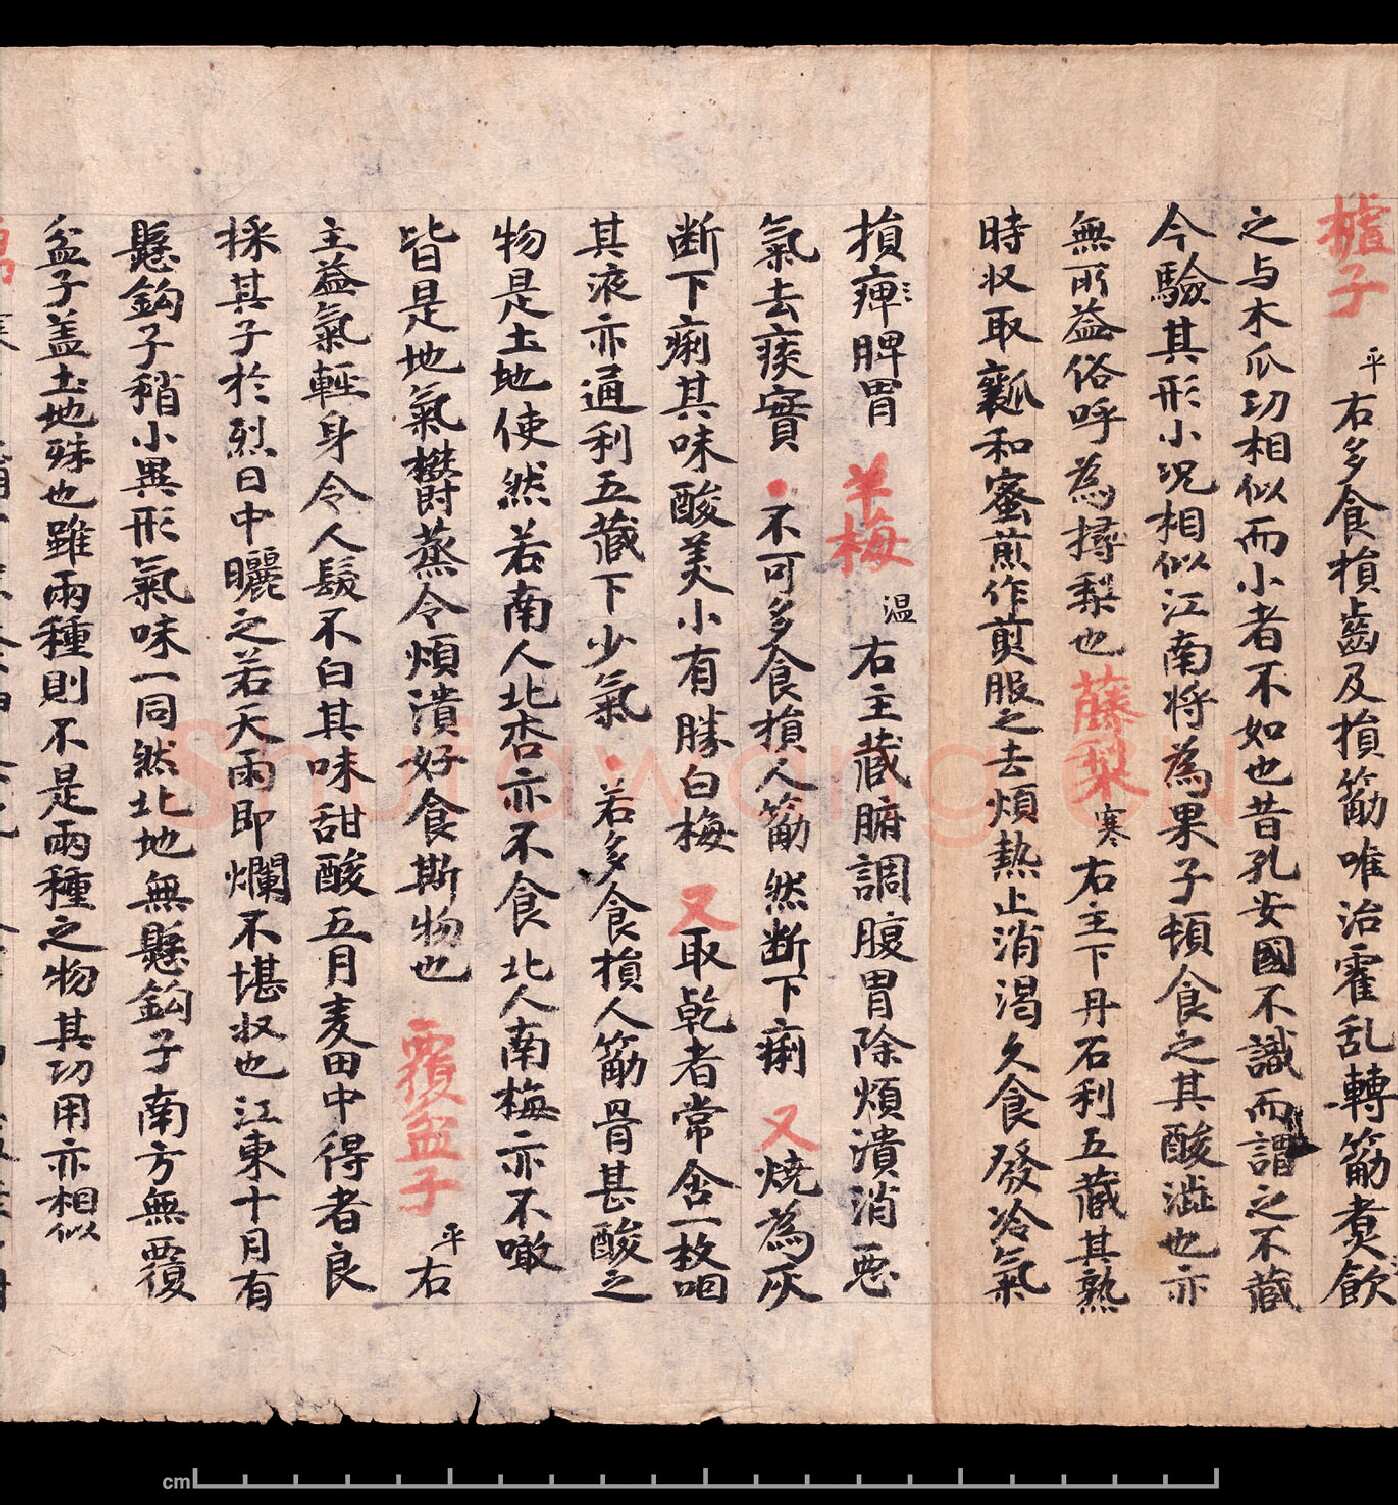 樝子平右多食損齒及損筋唯治霍乱轉筋煮飲
之与木瓜功相似而小者不如也昔孔安國不識而謂之不藏
今驗其形小况相似江南將為果子頓食之其酸澁也亦
無所益俗呼為㯆梨也藤梨寒右主下丹石利五藏其熟
時收取瓤和蜜煎作煎服之去煩熱止消渴久食發冷氣
損痺脾胃羊梅温右主藏腑調腹胃除煩潰消惡
氣去痰實不可多食損人筋然断下痢又燒為灰
断下痢其味酸美小有勝白梅又取乾者常含一枚咽
其液亦通利五藏下少氣若多食損人筋骨甚酸之
物是土地使然若南人北杏亦不食北人南梅亦不噉
皆是地氣欝蒸令煩潰好食斯物也覆盆子平右
主益氣輕身令人髮不白其味甜酸五月麦田中得者良
採其子於烈日中曬之若天雨即爛不堪收也江東十月有
懸鈎子稍小異形氣味一同然北地無懸鈎子南方無覆
盆子盖土地殊也雖兩種則不是兩種之物其功用亦相似
Shufawang.CN
cm